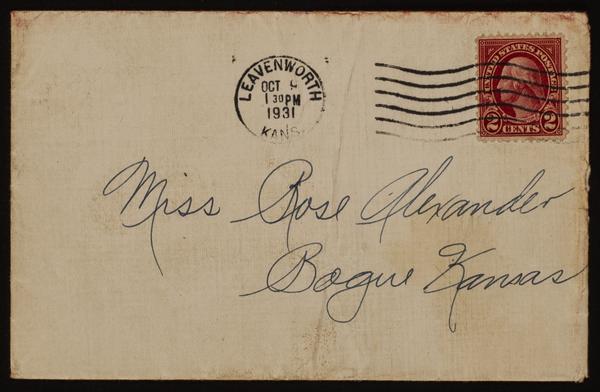 LEAVENWORTH
OCT
1 30 PM
1931
KANS.
UNITED STATES POSTAGE
2 CENTS 2
Miss Rose Alexander
Bogue Kansas